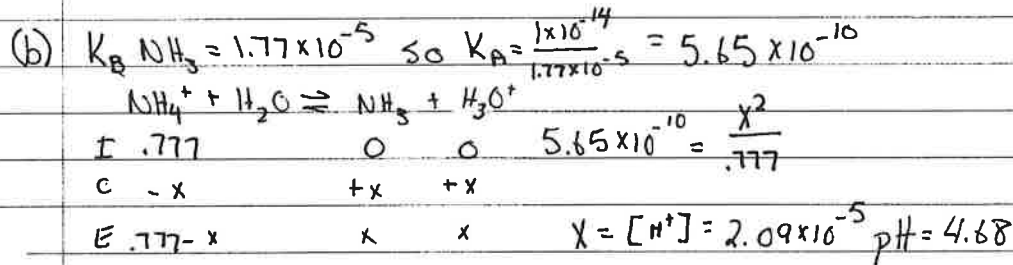 (b) K_B NH₃ = 1.77×10⁻⁵ so K_A = 1×10⁻¹⁴ / 1.77×10⁻⁵ = 5.65×10⁻¹⁰
NH₄⁺ + H₂O ⇌ NH₃ + H₃O⁺
I .777 0 0 5.65×10⁻¹⁰ = x² / .777
C -x +x +x
E .777-x x x X = [H⁺] = 2.09×10⁻⁵ pH = 4.68